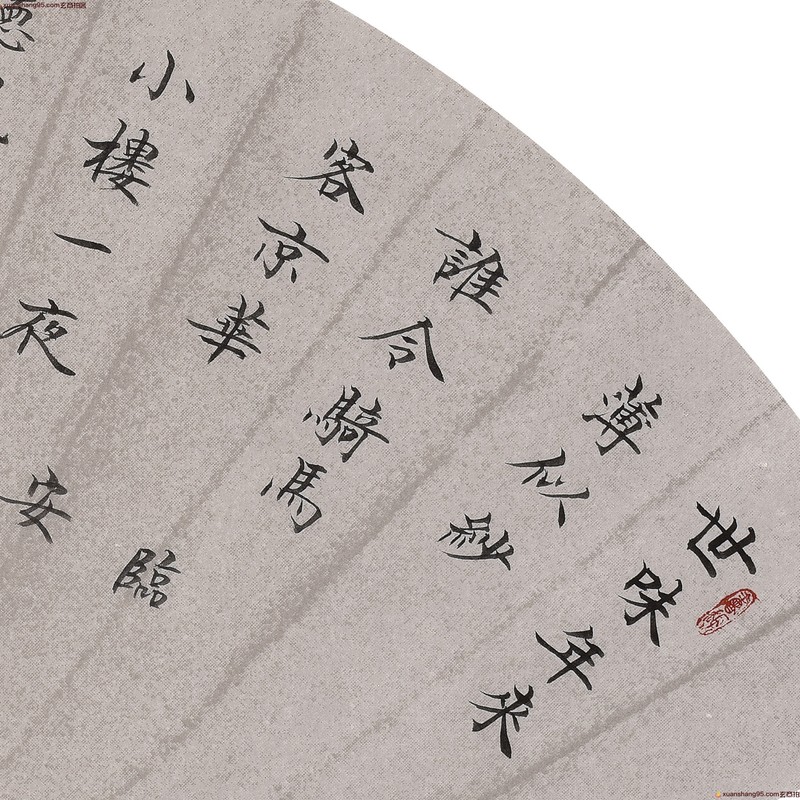 xuanshang95.com
世味年來
薄似紗
誰令騎馬
客京華
臨
小樓一夜
安
xuanshang95.com